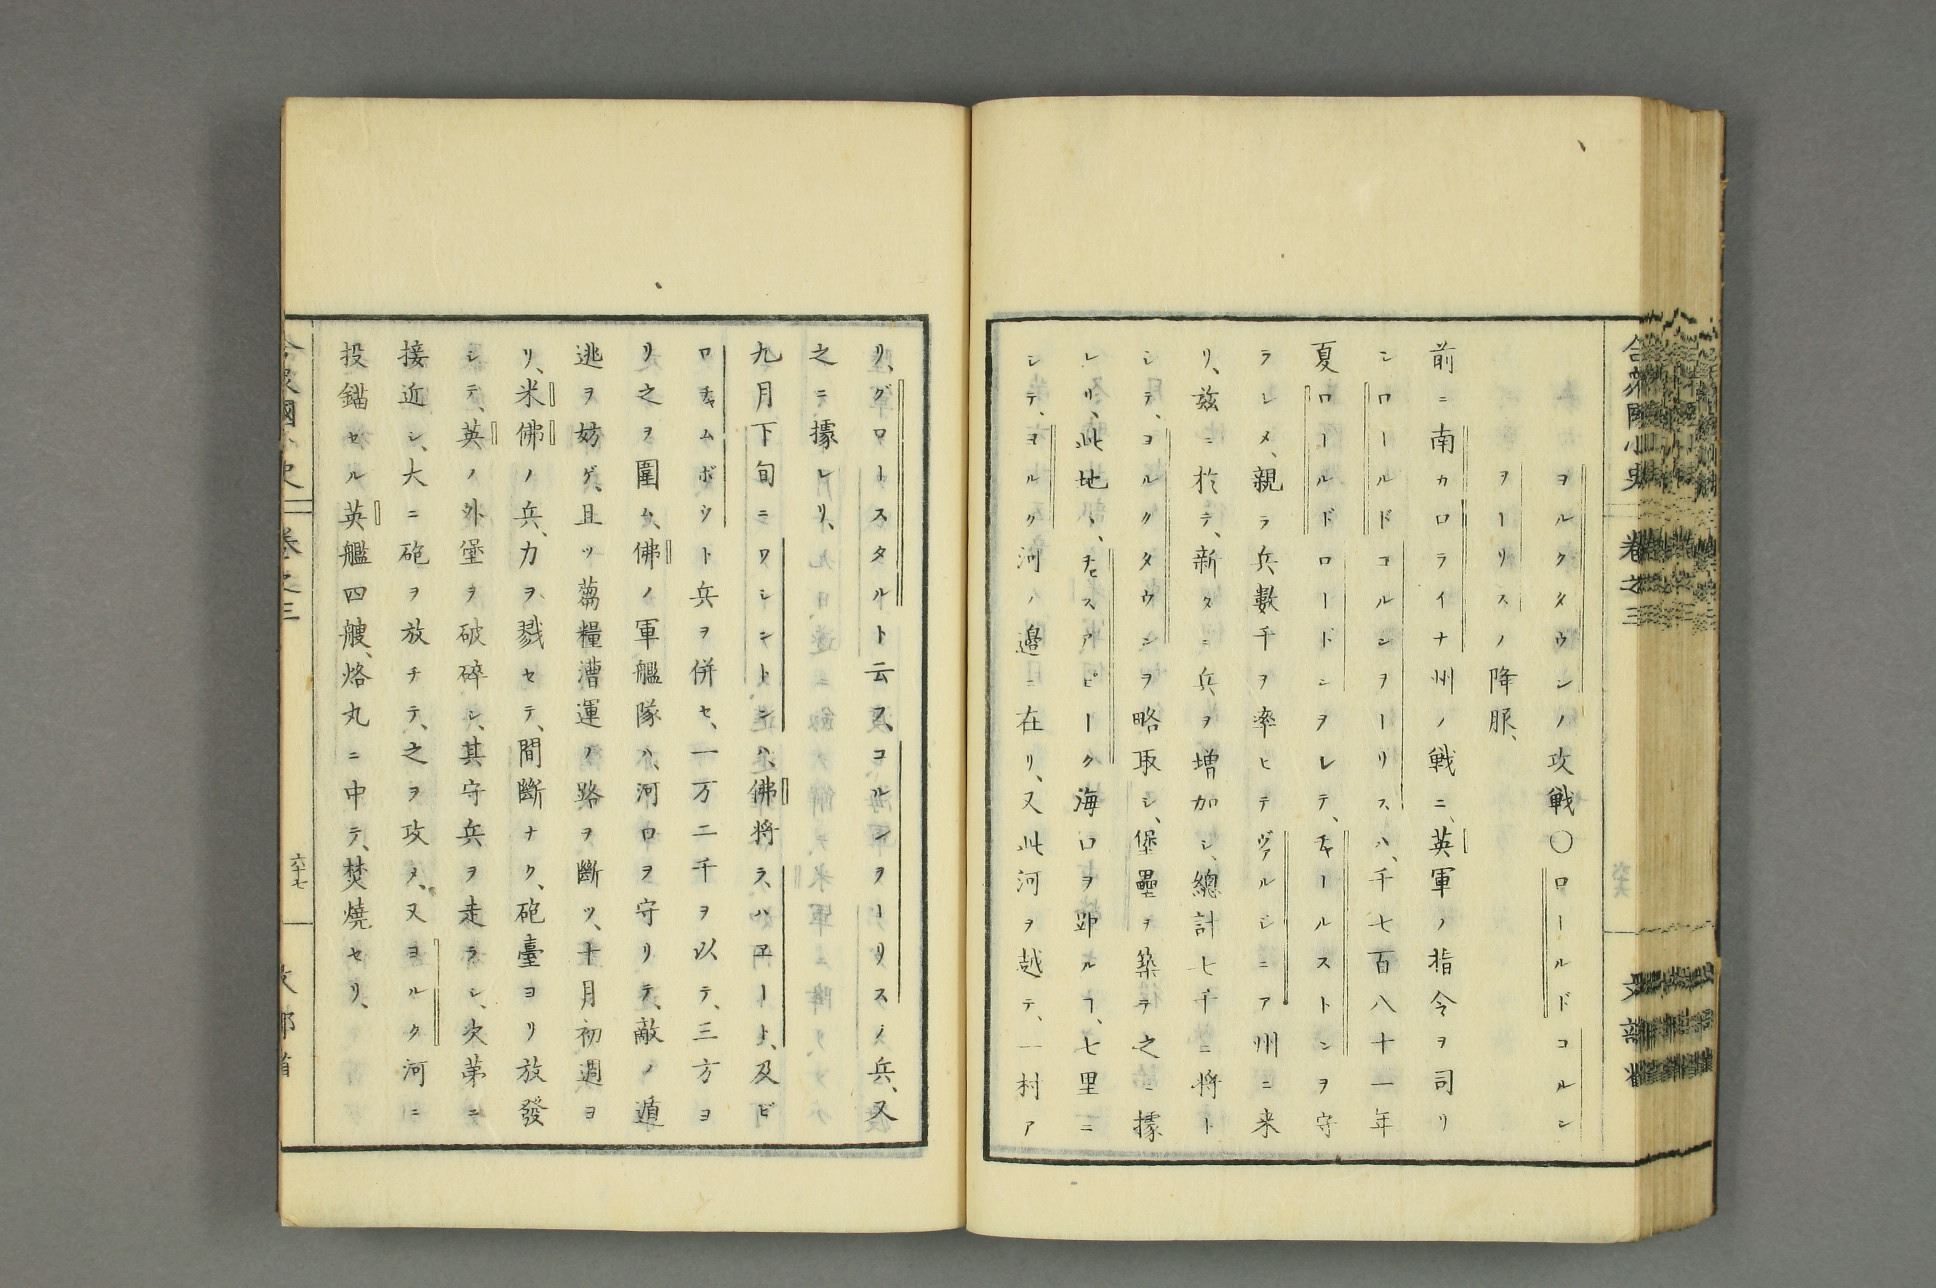 合衆國小史 卷之三 文部省
ヨルクタウンノ攻戰〇ロールドコルン
ヲーリスノ降服、
前ニ南カロライナ州ノ戰ニ、英軍ノ指令ヲ司リ
シロールドコルンヲーリスハ、千七百八十一年
夏ロールドロードンヲシテ、チャールストンヲ守
ラシメ、親ラ兵數千ヲ率ヒテヴァルジニア州ニ来
リ、玆ニ於テ、新タニ兵ヲ増加シ、總計七千ニ将ト
シテ、ヨルクタウンヲ略取シ、堡壘ヲ築テ之ニ據
レリ、此地ハ、チェスアピーク海口ヲ距ルヿ、七里ニ
シテ、ヨルク河ノ邉ニ在リ、又此河ヲ越テ、一村ア
リ、グロトスタルト云ス、コルンヲーリスノ兵、又
之ニ據レリ、
九月下旬ニワシントンハ、佛将ラハエート、及ビ
ロチャムボウト兵ヲ併セ、一万二千ヲ以テ、三方ヨ
リ之ヲ圍ム、佛ノ軍艦隊ハ、河口ヲ守リテ、敵ノ遁
逃ヲ妨ゲ、且ツ蒭糧漕運ノ路ヲ斷ツ、十月初週ヨ
リ、米佛ノ兵、力ヲ戮セテ、間斷ナク、砲臺ヨリ放發
シテ、英ノ外堡ヲ破碎シ、其守兵ヲ走ラシ、次第ニ
接近シ、大ニ砲ヲ放チテ、之ヲ攻メ、又ヨルク河ニ
投錨セル英艦四艘、烙丸ニ中テ、焚燒セリ、
合衆國小史 卷之三 六十七 文部省